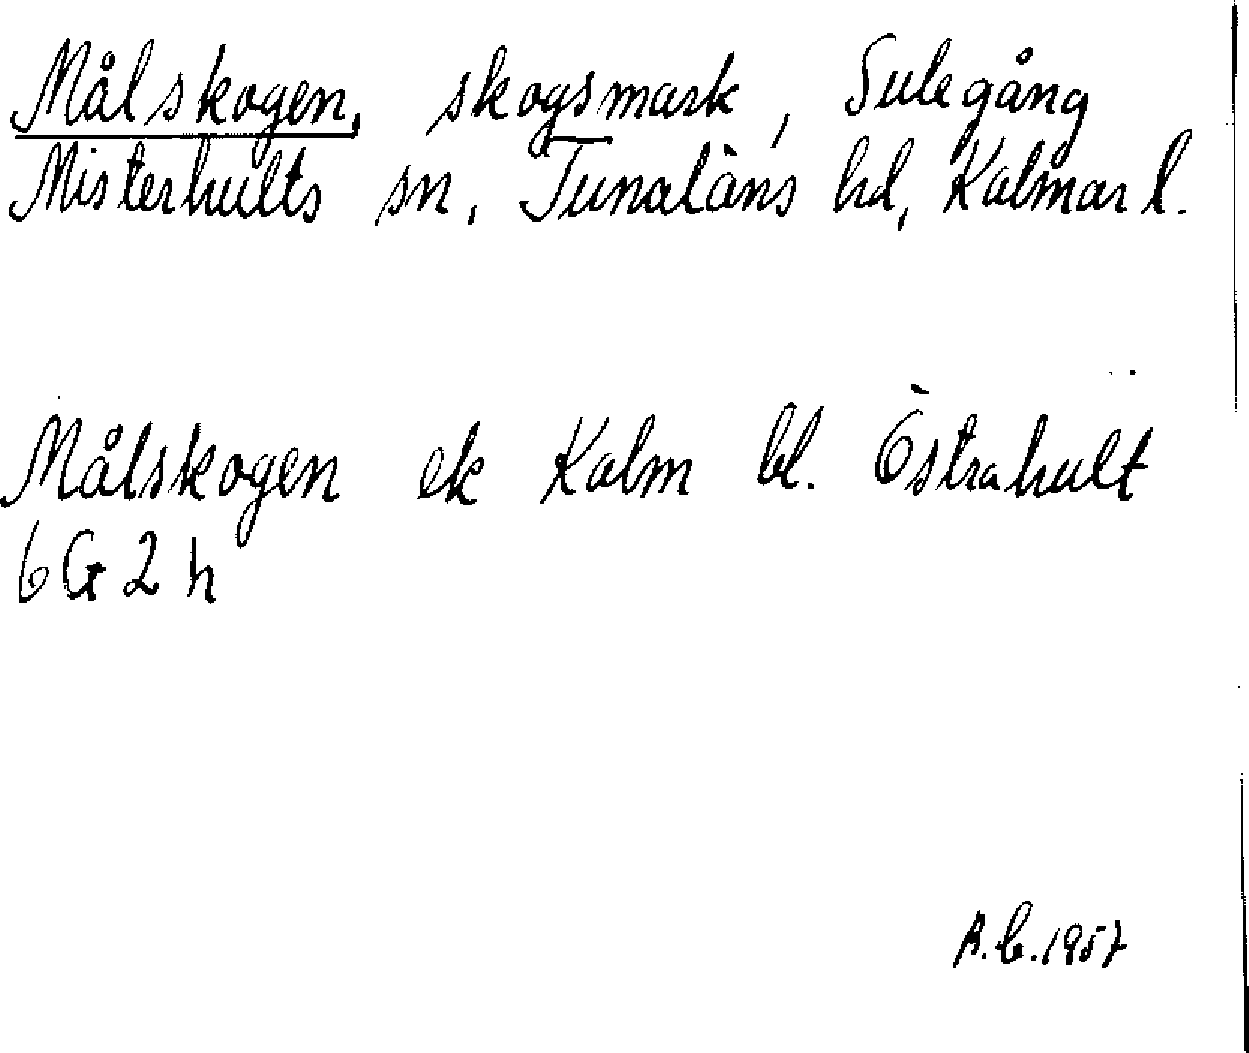 Målskogen, skogsmark, Sulegång
Misterhults sn, Tunaläns hd, Kalmar l.
Målskogen ek Kalm bl. Östrahult
6G2h
A.C.1957